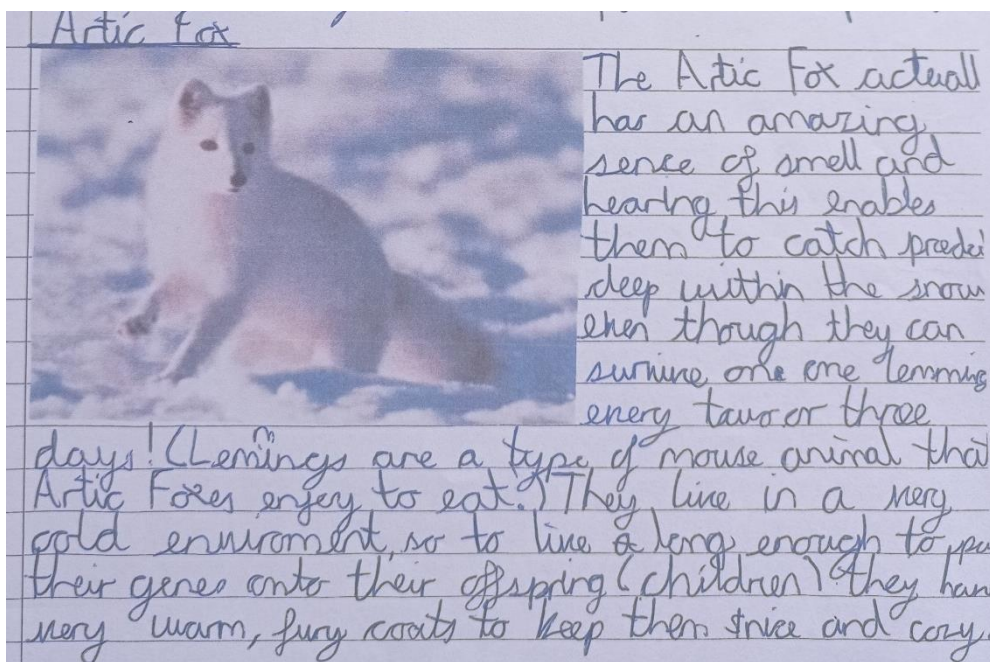 Artic Fox
The Artic Fox actuall
has an amazing
sence of smell and
hearing, this enables
them to catch
deep within the snow
even though they can
survive one one lemming
every two or three
days! (Lemmings are a type of mouse animal that
Artic Foxes enjoy to eat.) They live in a very
cold enviroment, so to live a long enough to pa
their genes onto their offspring (children) they hav
very warm, fury coats to keep them nice and cozy.